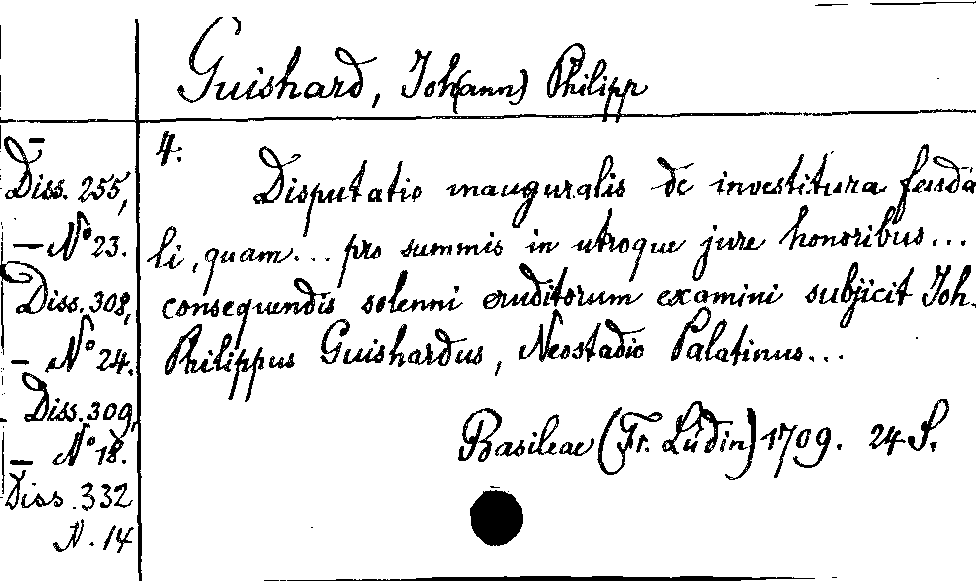 Guishard, Joh(ann) Philipp
4:
Disputatio inauguralis de investitura feuda
li, quam... pro summis in utroque jure honoribus...
consequendis solenni eruditorum examini subjicit Joh.
Philippus Guishardus, Neostadio Palatinus...
Basileae (Fr. Lüdin) 1709. 24 S.
Diss. 255,
— No 23.
Diss. 308,
— No 24.
Diss. 309,
— No 18.
Diss. 332
N. 14